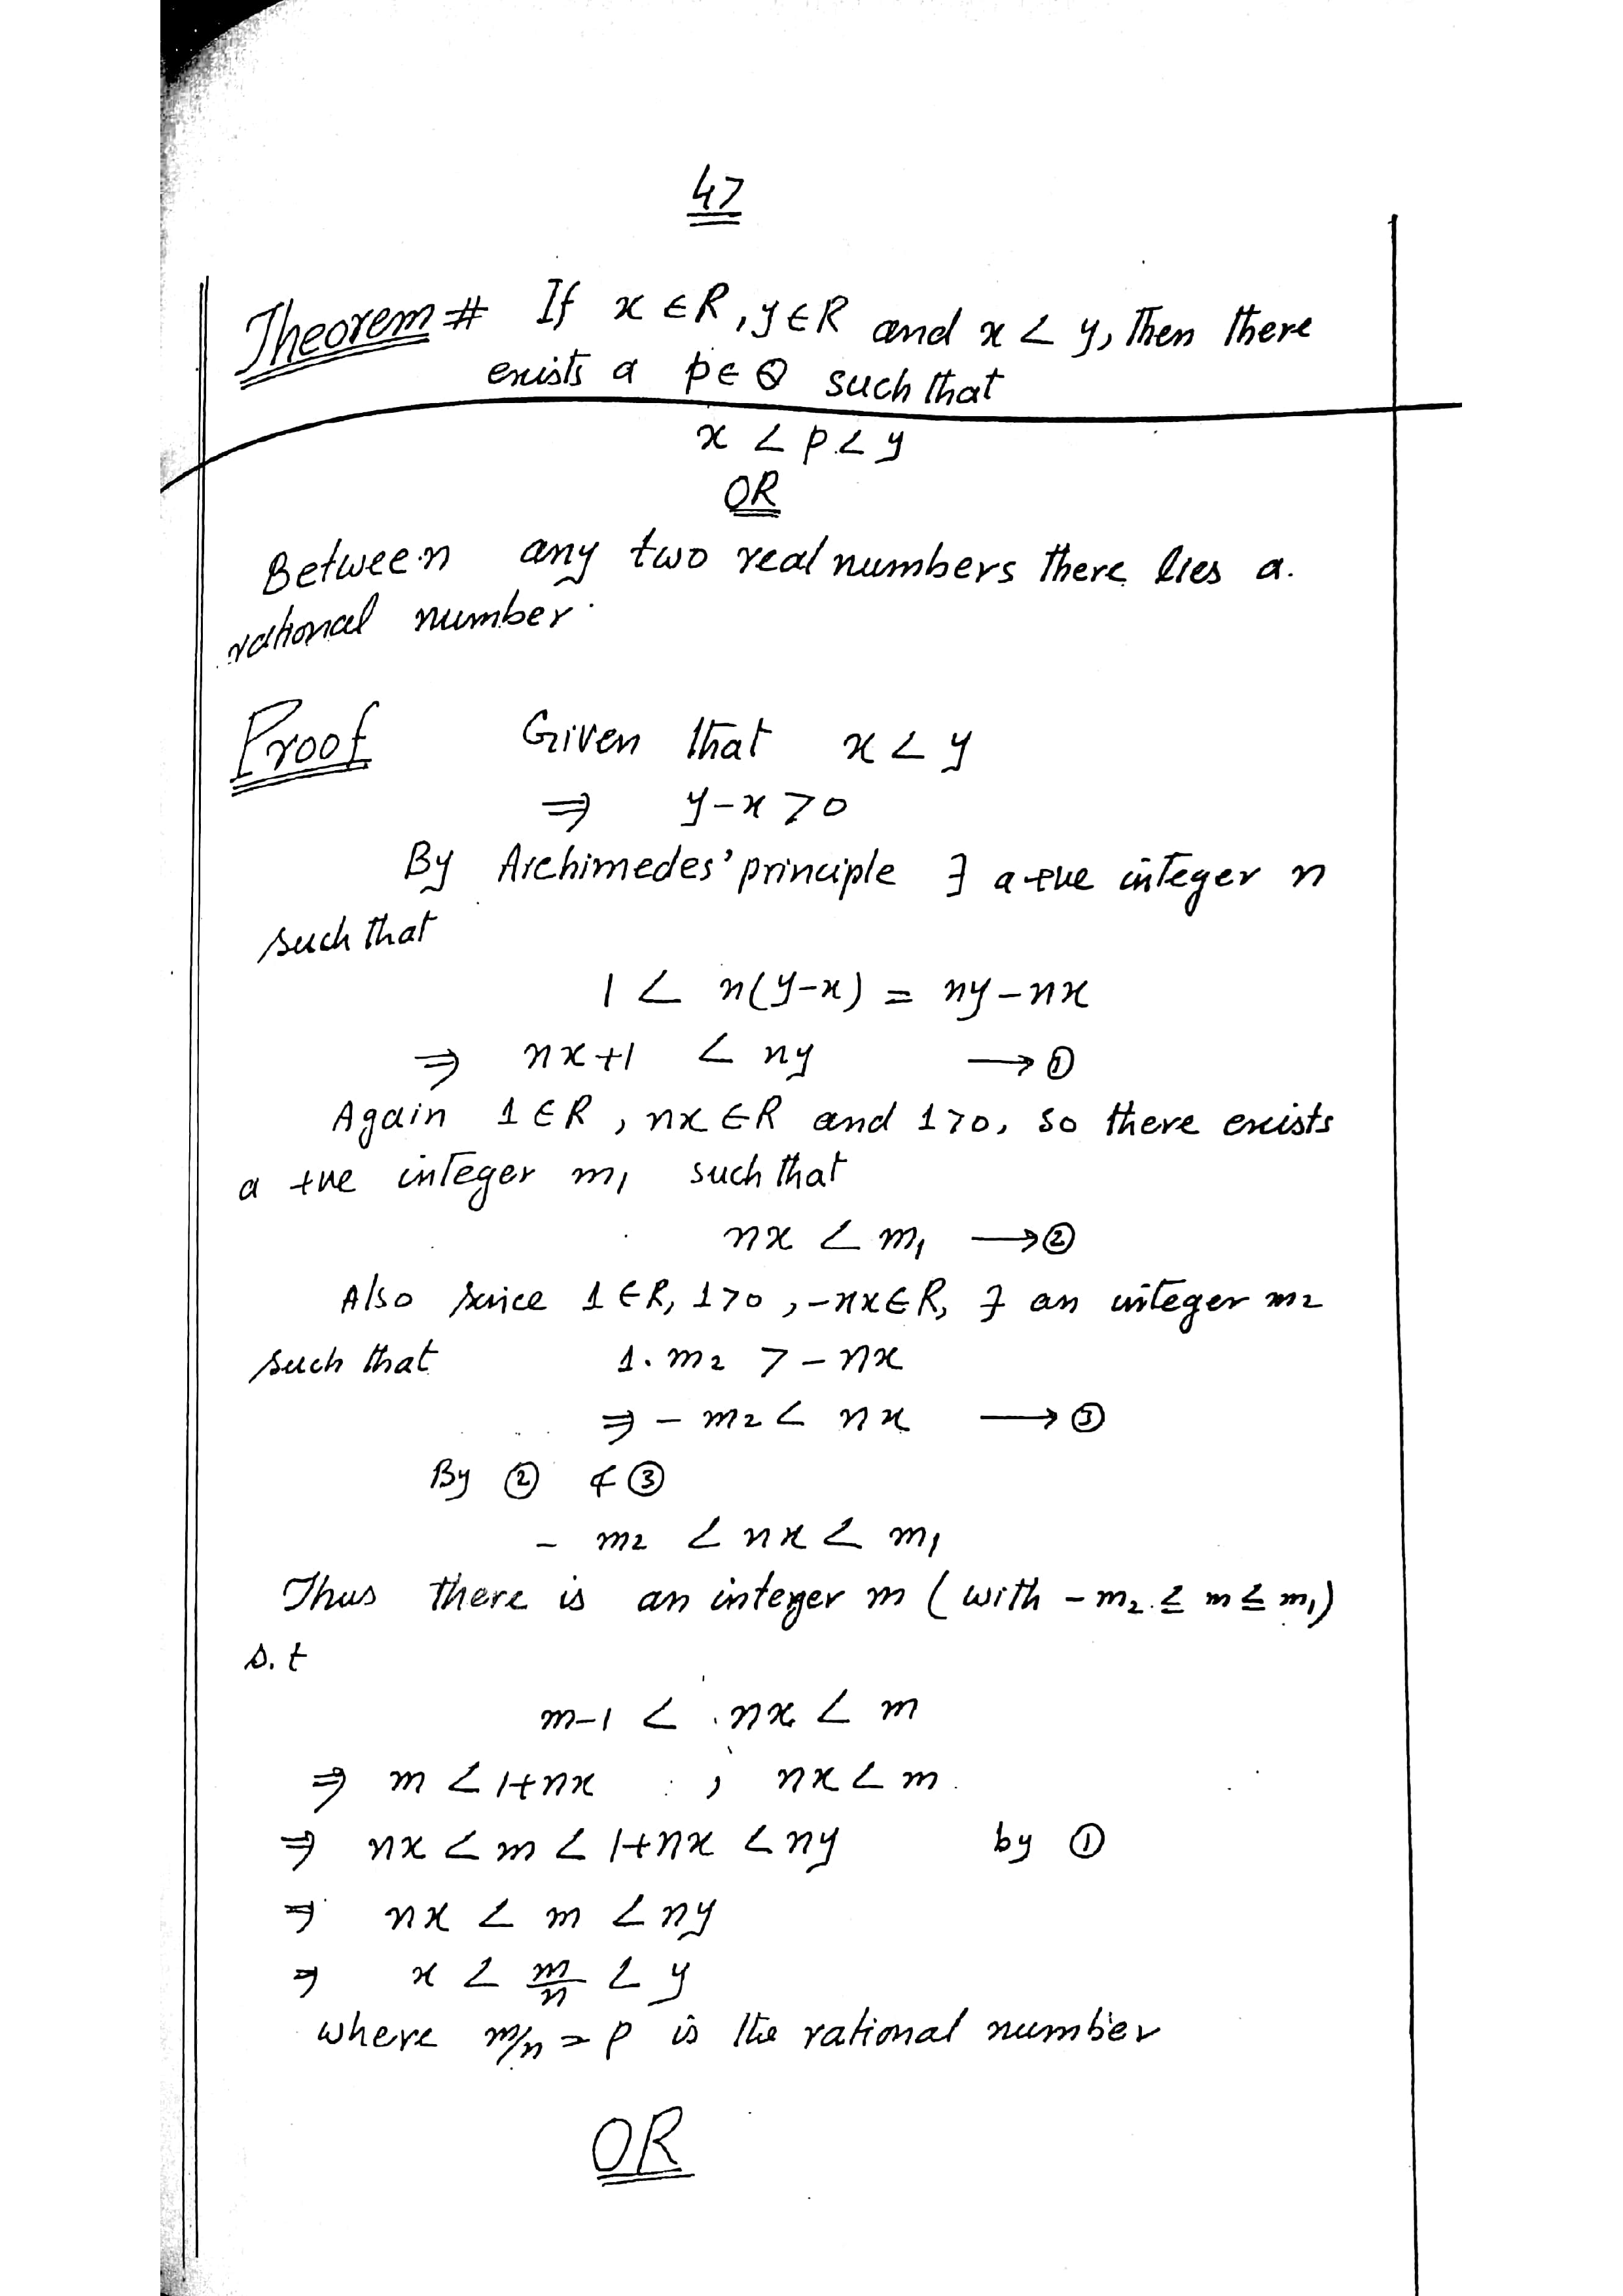 47
Theorem # If x ∈ R, y ∈ R and x < y, Then there
exists a p ∈ Q such that
x < p < y
OR
Between any two real numbers there lies a
rational number.
Proof Given that x < y
⇒ y-x > 0
By Archimedes' principle ∃ a +ve integer n
such that
1 < n(y-x) = ny-nx
⇒ nx+1 < ny → ①
Again 1 ∈ R, nx ∈ R and 1>0, so there exists
a +ve integer m₁ such that
nx < m₁ → ②
Also since 1 ∈ R, 1>0, -nx ∈ R, ∃ an integer m₂
such that 1. m₂ > -nx
⇒ - m₂ < nx → ③
By ② & ③
- m₂ < nx < m₁
Thus there is an integer m (with -m₂ ≤ m ≤ m₁)
s.t
m-1 < nx < m
⇒ m < 1+nx ; nx < m
⇒ nx < m < 1+nx < ny by ①
⇒ nx < m < ny
⇒ x < m/n < y
where m/n = p is the rational number
OR